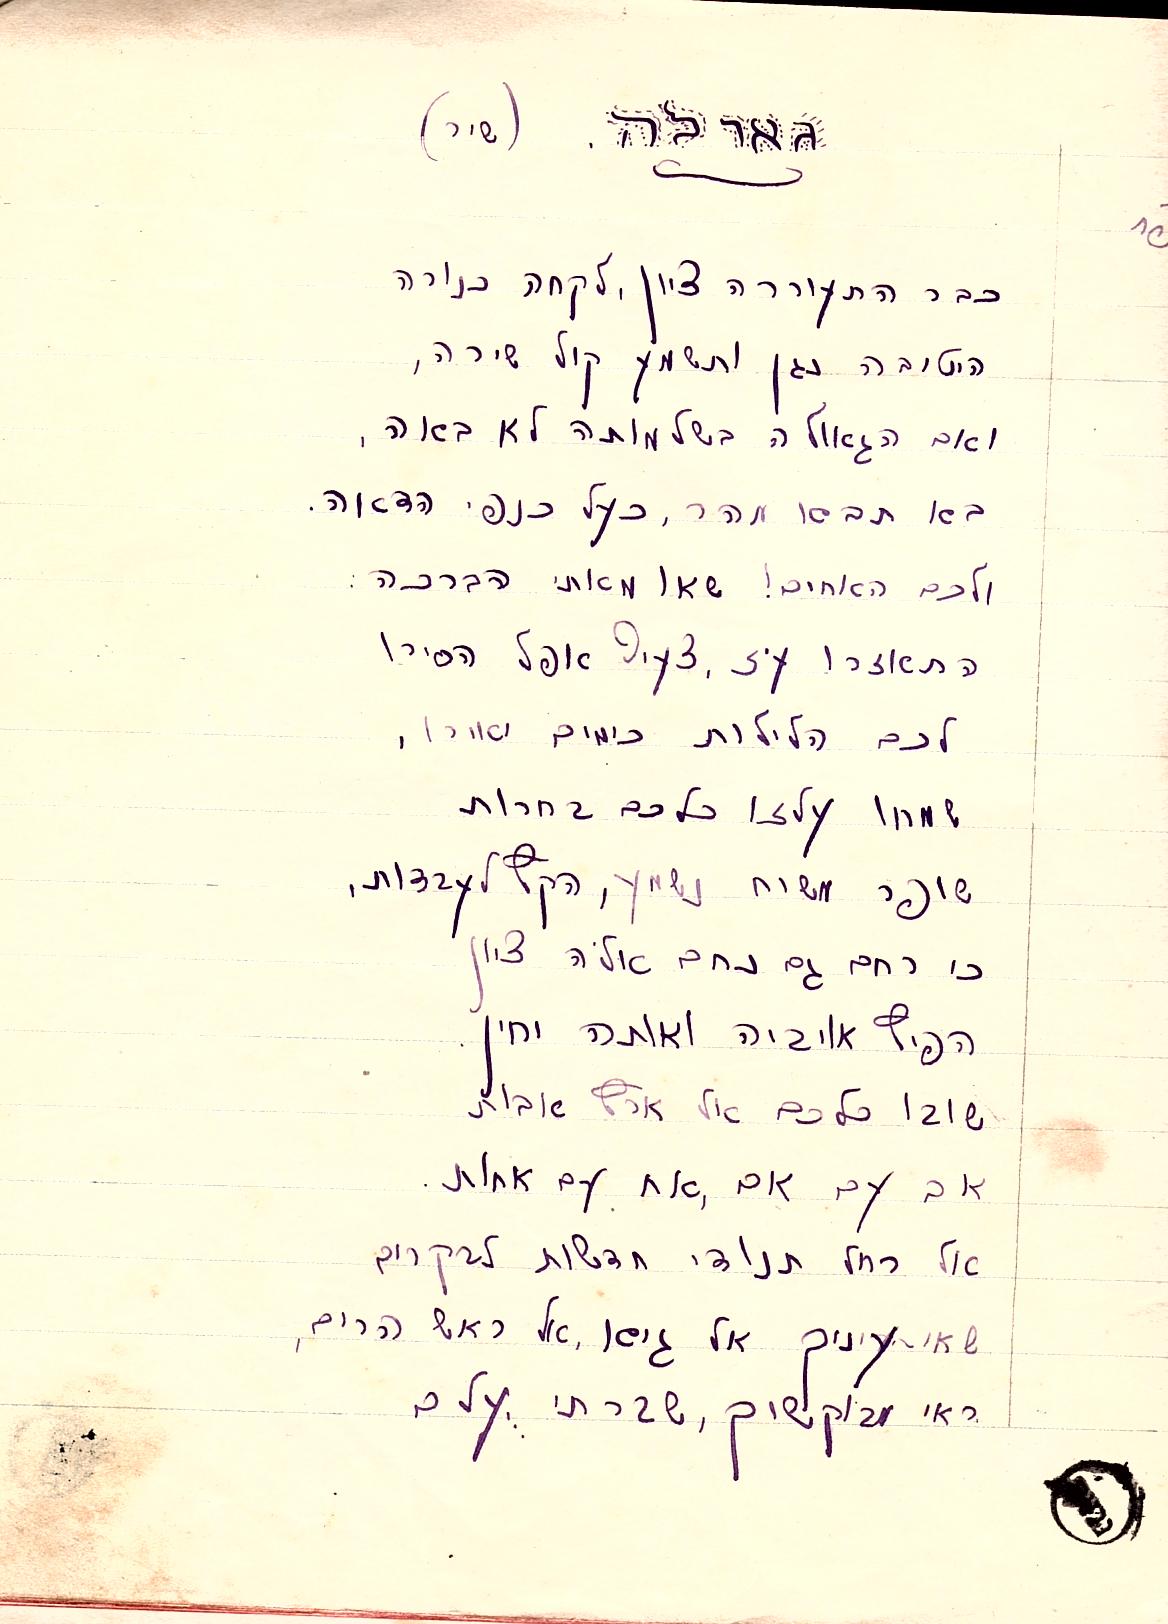 גאולה. (שיר)
כבר התעוררה ציון, לקחה כנורה
היטיבה נגן ותשמע קול שירה,
ואם הגאולה בשלמותה לא באה,
בא תבא מהר, כעל כנפי הדאוה.
ולכם האחים! שאו מאתי הברכה:
התאזרו עיז, צעיף אופל הסירו
לכם הלילות כימים יאורו,
שמחו עלזו כלכם בחרות
שופר משיח נשמע, הקץ לעבדות,
כי רחם גם נחם אולה ציון
הפיץ אויביה ואותה יחין.
שובו כלכם אל ארץ אבות
אב עם אם, אח עם אחות.
אל רחל תנודי חדשות לבקרים
שאי עיניך אל גיא, אל ראש הרים,
ראי מבוקשיך, שברתי על ם